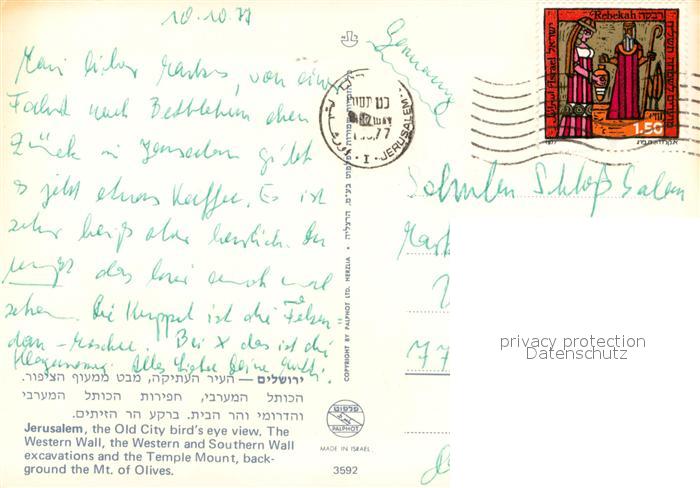 10.10.77
Mein lieber Markus, von einer
Fahrt nach Bethlehem eben
zurück in Jerusalem gibt
es jetzt etwas Kaffee. Es ist
sehr heiß aber herrlich. Du
mußt das hier auch mal
sehen. Die Kuppel ist die Felsen-
dom-Moschee. Bei X das ist die
Klagemauer. Alles Liebe Deine
ירושלים — העיר העתיקה, מבט ממעוף הציפור.
הכותל המערבי, חפירות הכותל המערבי
והדרומי והר הבית. ברקע הר הזיתים.
Jerusalem, the Old City bird's eye view. The
Western Wall, the Western and Southern Wall
excavations and the Temple Mount, back-
ground the Mt. of Olives.
COPYRIGHT BY PALPHOT LTD. HERZLIA •
פלפוט
PALPHOT
MADE IN ISRAEL
3592
Germany
JERUSALEM
Rebekah רבקה
Israel ישראל
1.50
1977
Schulen Schloß Salem
77
privacy protection
Datenschutz